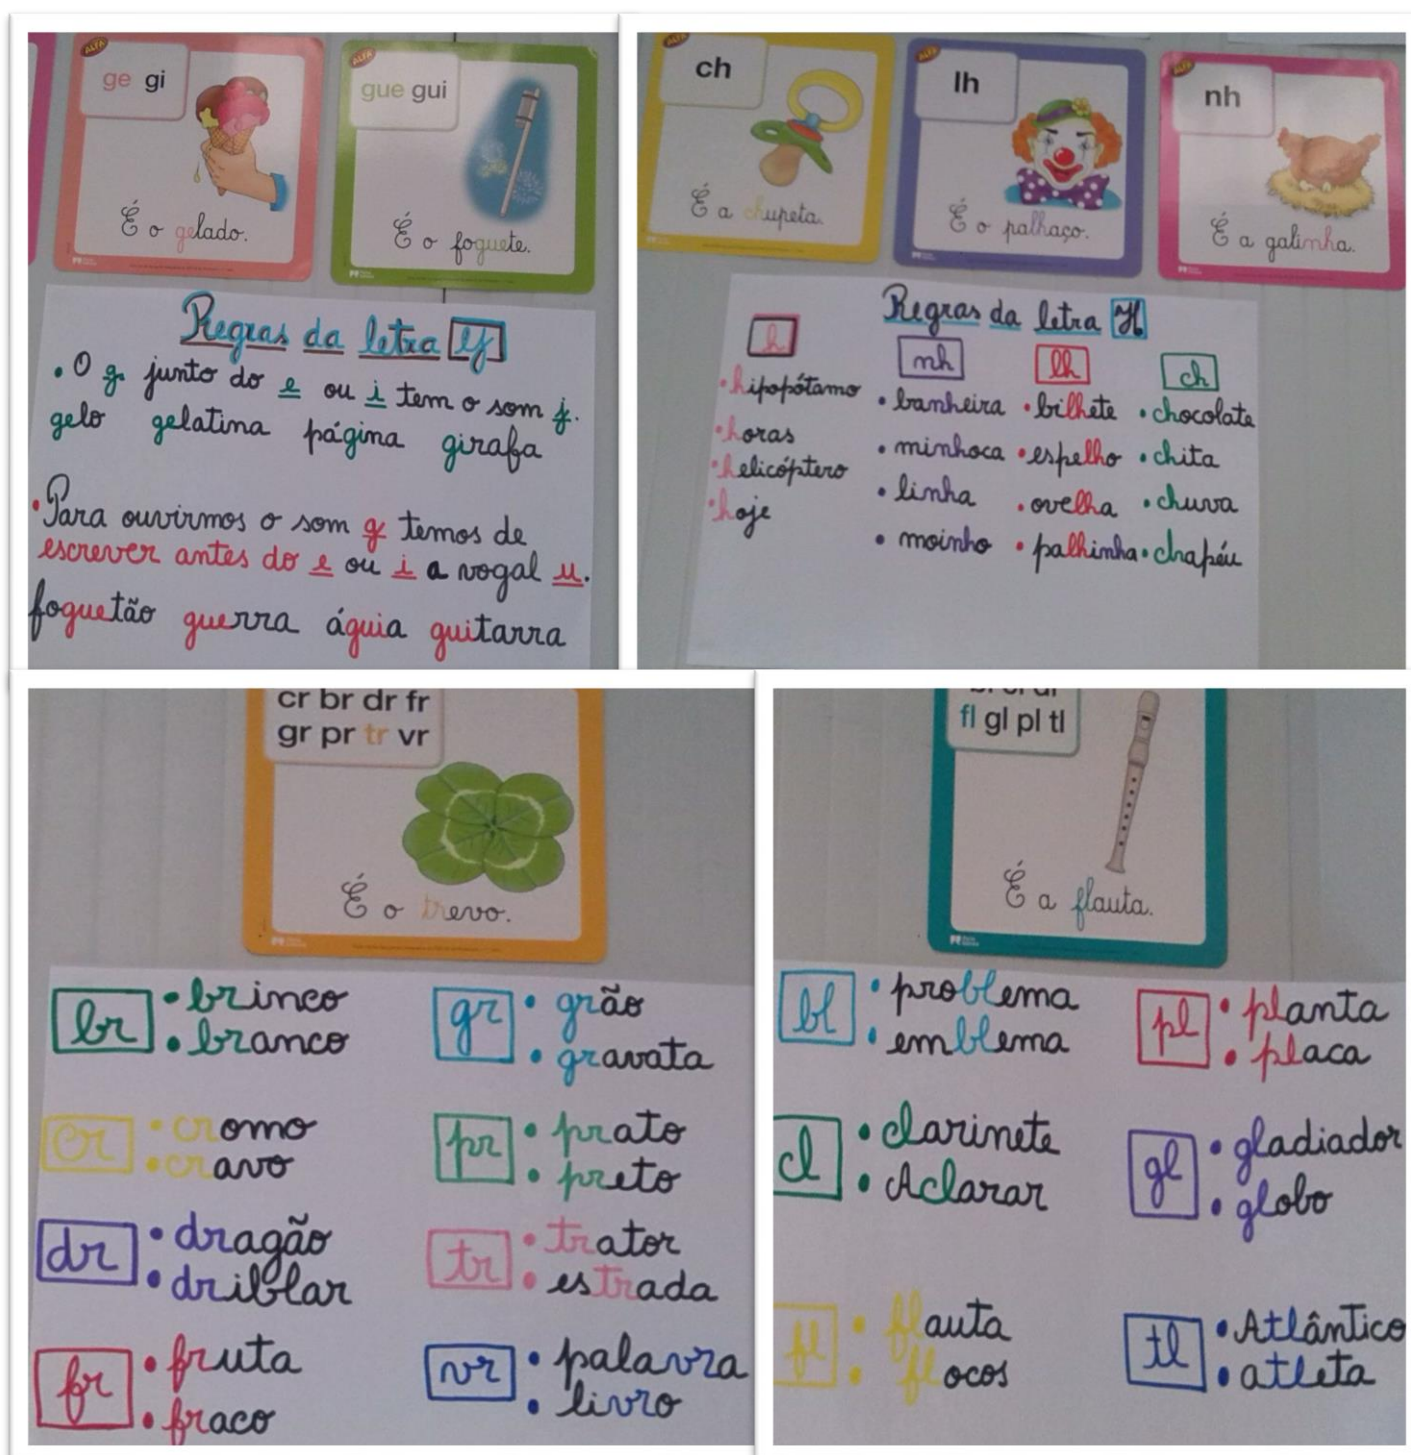 ALFA
ge gi
É o gelado.
ALFA
gue gui
É o foguete.
Regras da letra G
• O g junto do e ou i tem o som j.
gelo gelatina página girafa
• Para ouvirmos o som g temos de
escrever antes do e ou i a vogal u.
foguetão guerra águia guitarra
ALFA
ch
É a chupeta.
ALFA
lh
É o palhaço.
ALFA
nh
É a galinha.
Regras da letra H
h
• hipopótamo
• horas
• helicóptero
• hoje
nh
• banheira
• minhoca
• linha
• moinho
lh
• bilhete
• espelho
• ovelha
• palhinha
ch
• chocolate
• chita
• chuva
• chapéu
cr br dr fr
gr pr tr vr
É o trevo.
br
• brinco
• branco
cr
• cromo
• cravo
dr
• dragão
• driblar
fr
• fruta
• fraco
gr
• grão
• gravata
pr
• prato
• preto
tr
• trator
• estrada
vr
• palavra
• livro
fl gl pl tl
É a flauta.
bl
• problema
• emblema
cl
• clarinete
• Aclarar
fl
• flauta
• flocos
pl
• planta
• placa
gl
• gladiador
• globo
tl
• Atlântico
• atleta